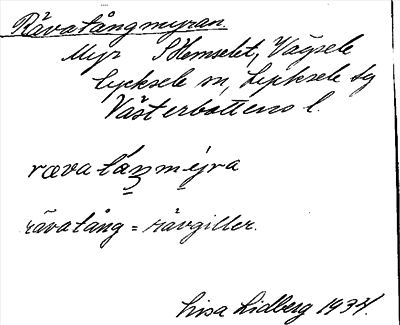 Rävatångmyran.
Myr Stensele, Vägsele
Lycksele sn, Lycksele tg
Västerbottens l.
rævatáŋmẏra
rävatång = rävgiller.
Lisa Lidberg 1937.